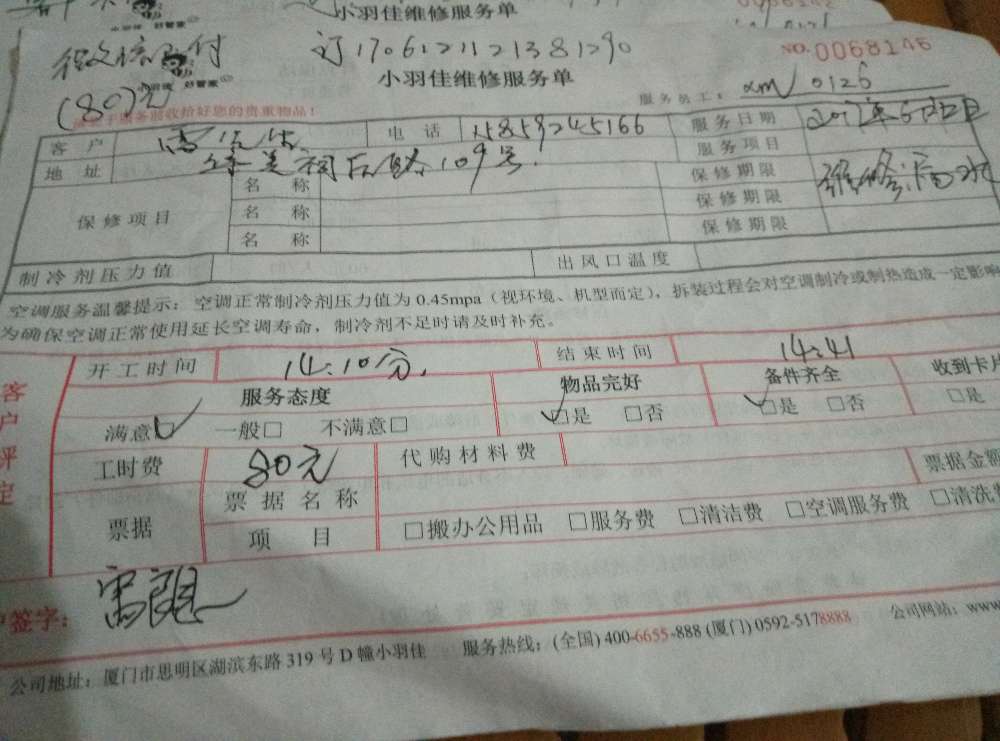 小羽佳维修服务单
微信支付 订1706121121381290 NO.0068146
(80)元 小羽佳维修服务单 服务员工: xm 0126
收拾好您的贵重物品!
客户 电话 15859245166 服务日期
地址 后路109号. 服务项目 维修漏水
保修项目 名称 保修期限
名称 保修期限
名称 保修期限
制冷剂压力值 出风口温度
空调服务温馨提示: 空调正常制冷剂压力值为 0.45mpa (视环境、机型而定), 拆装过程会对空调制冷或制热造成一定影响
为确保空调正常使用延长空调寿命, 制冷剂不足时请及时补充。
客户评定
开工时间 14:10分. 结束时间 14:41
服务态度 物品完好 备件齐全 收到卡片
满意☑ 一般□ 不满意□ ☑是 □否 ☑是 □否 □是
工时费 80元 代购材料费
票据 票据名称 票据金额
项目 □搬办公用品 □服务费 □清洁费 □空调服务费 □清洗
户签字:
公司地址: 厦门市思明区湖滨东路 319 号 D 幢小羽佳 服务热线: (全国) 400-6655-888 (厦门) 0592-5178888 公司网站: www